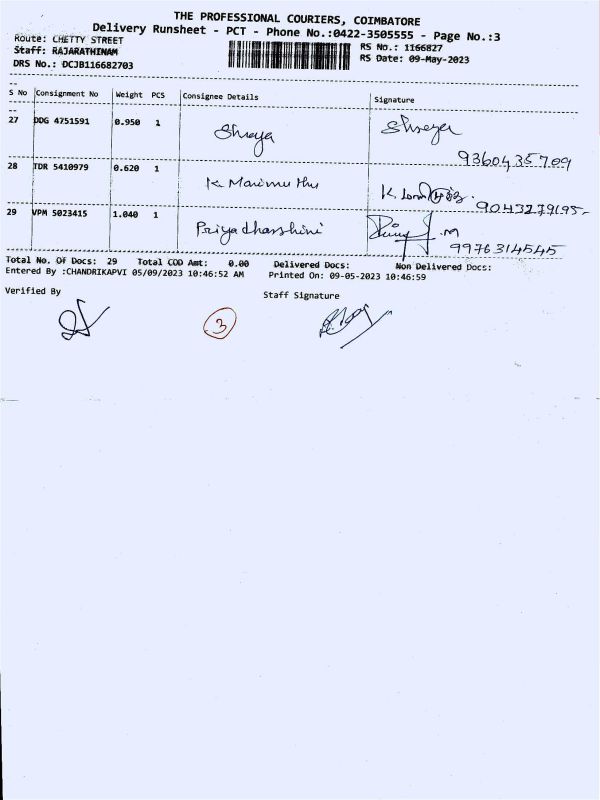 THE PROFESSIONAL COURIERS, COIMBATORE
Delivery Runsheet - PCT - Phone No.:0422-3505555 - Page No.:3
Route: CHETTY STREET
Staff: RAJARATHINAM
DRS No.: DCJB116682703
RS No.: 1166827
RS Date: 09-May-2023
S No Consignment No Weight PCS Consignee Details Signature
27 DDG 4751591 0.950 1 Shreya Shreya
9360435709
28 TDR 5410979 0.620 1 K. Marimuthu K.
9043279195
29 VPM 5023415 1.040 1 Priyadharshini .M
9976314545
Total No. Of Docs: 29 Total COD Amt: 0.00 Delivered Docs: Non Delivered Docs:
Entered By :CHANDRIKAPVI 05/09/2023 10:46:52 AM Printed On: 09-05-2023 10:46:59
Verified By Staff Signature
3